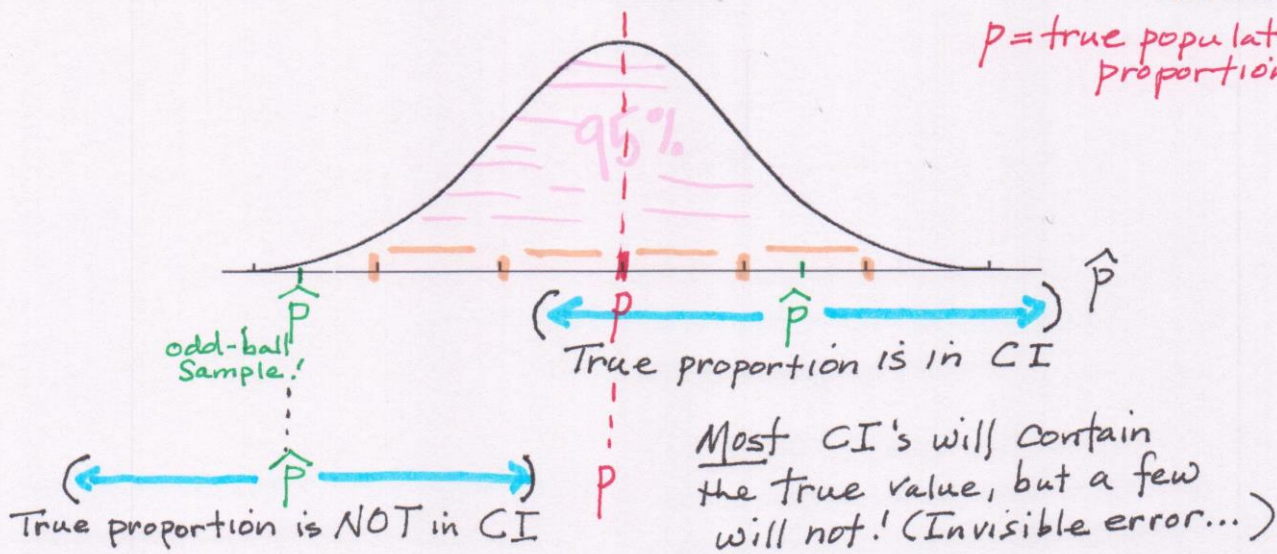 p = true populat
proportion
95%
p̂
p̂
P
p̂
odd-ball
Sample!
True proportion is in CI
p̂
P
True proportion is NOT in CI
Most CI's will contain
the true value, but a few
will not! (Invisible error...)